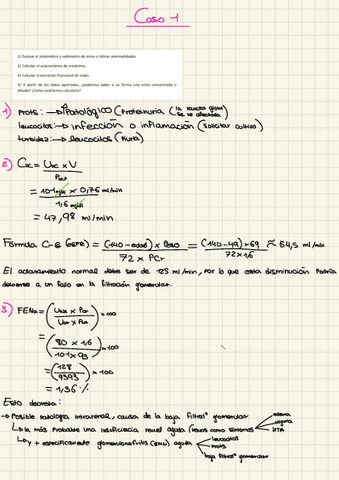 Caso 1
1) Evaluar el sistemático y sedimento de orina e indicar anormalidades.
2) Calcular el aclaramiento de creatinina.
3) Calcular la excreción fraccional de sodio.
4) A partir de los datos aportados, ¿podemos saber si se forma una orina concentrada o diluida? ¿Cómo podríamos calcularlo?
1) Prots: → Patológico (Proteinuria (la función glom
se ve afectada)
leucocitos: → infección o inflamación (solicitar cultivo)
turbidez: → leucocitos (Turia)
2) Ccr = Ucr x V
Pcr
= 101 mg/dl x 0,76 ml/min
1,6 mg/dl
= 47,98 ml/min
Fórmula C-G = (140-edad) x Peso = (140-49) x 69 ≈ 54,5 ml/min
72 x PCr 72 x 1,6
El aclaramiento normal debe ser de 125 ml/min, por lo que esta disminución podría
deberse a un fallo en la filtración glomerular.
3) FENa = (UNa x Pcr) x100
Ucr x PNa
= (80 x 1,6) x100
101 x 93
= (128) x 100
9393
= 1,36 %
Esto decreta:
→ Posible patología intrarrenal, causa de la baja filtratº glomerular
↳ la más probable una insuficiencia renal aguda (vemos como síntomas edema
HTA
↳ y + específicamente glomerulonefritis (GMN) aguda leucocitos
Prots
baja filtratº glomerular